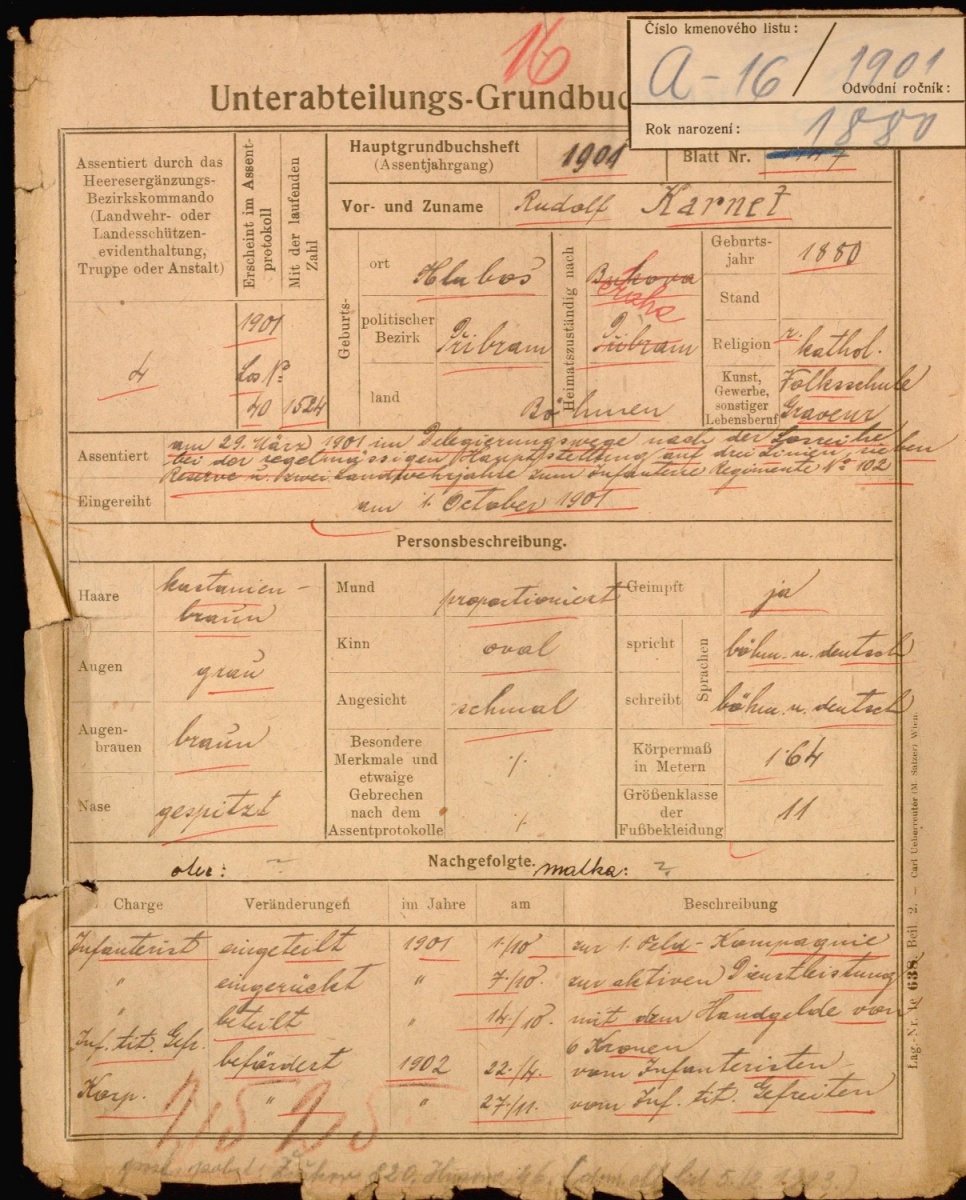 16
Číslo kmenového listu:
A-16/1901
Odvodní ročník:
Rok narození: 1880
Unterabteilungs-Grundbuc
Assentiert durch das
Heeresergänzungs-
Bezirkskommando
(Landwehr- oder
Landesschützen-
evidenthaltung,
Truppe oder Anstalt)
4
Erscheint im Assent-
protokoll
Mit der laufenden
Zahl
1901
Los No
40 1524
Hauptgrundbuchsheft
(Assentjahrgang) 1901
Blatt Nr.
Vor- und Zuname Rudolf Karnet
Geburts-
ort Hlubos
politischer
Bezirk Přibram
land Böhmen
Heimatszuständig nach
Bukova
Praha
Přibram
Geburts-
jahr 1880
Stand
Religion r. kathol.
Kunst,
Gewerbe,
sonstiger
Lebensberuf
Volksschule
Graveur
Assentiert am 29. März 1901 im Delegierungswege nach der Losreihe
bei der regelmässigen Hauptstellung auf drei Linien, sieben
Reserve u. zwei Landwehrjahre zum Infanterie Regimente No 102
Eingereiht am 1. October 1901
Personsbeschreibung.
Haare kastanien-
braun
Augen grau
Augen-
brauen braun
Nase gespitzt
Mund proportioniert
Kinn oval
Angesicht schmal
Besondere
Merkmale und
etwaige
Gebrechen
nach dem
Assentprotokolle
./.
./.
Geimpft ja
Sprachen
spricht böhm. u. deutsch
schreibt böhm. u. deutsch
Körpermaß
in Metern 1·64
Größenklasse
der
Fußbekleidung 11
Nachgefolgte.
otec: ~ matka: ?
Charge Veränderungen im Jahre am Beschreibung
Infanterist eingeteilt 1901 1./10. zur 1. Feld-Kompagnie
" eingerückt " 7./10. zur aktiven Dienstleistung
" beteilt " 14./10. mit dem Handgelde von
6 Kronen
Inf. tit. Gefr. befördert 1902 22./4. vom Infanteristen
Korp. " " 27/11. vom Inf. tit. Gefreiten
Žižkov 820,
Lag.-Nr. 1c 638. Beil. 2. — Carl Ueberreuter (M. Salzer) Wien.